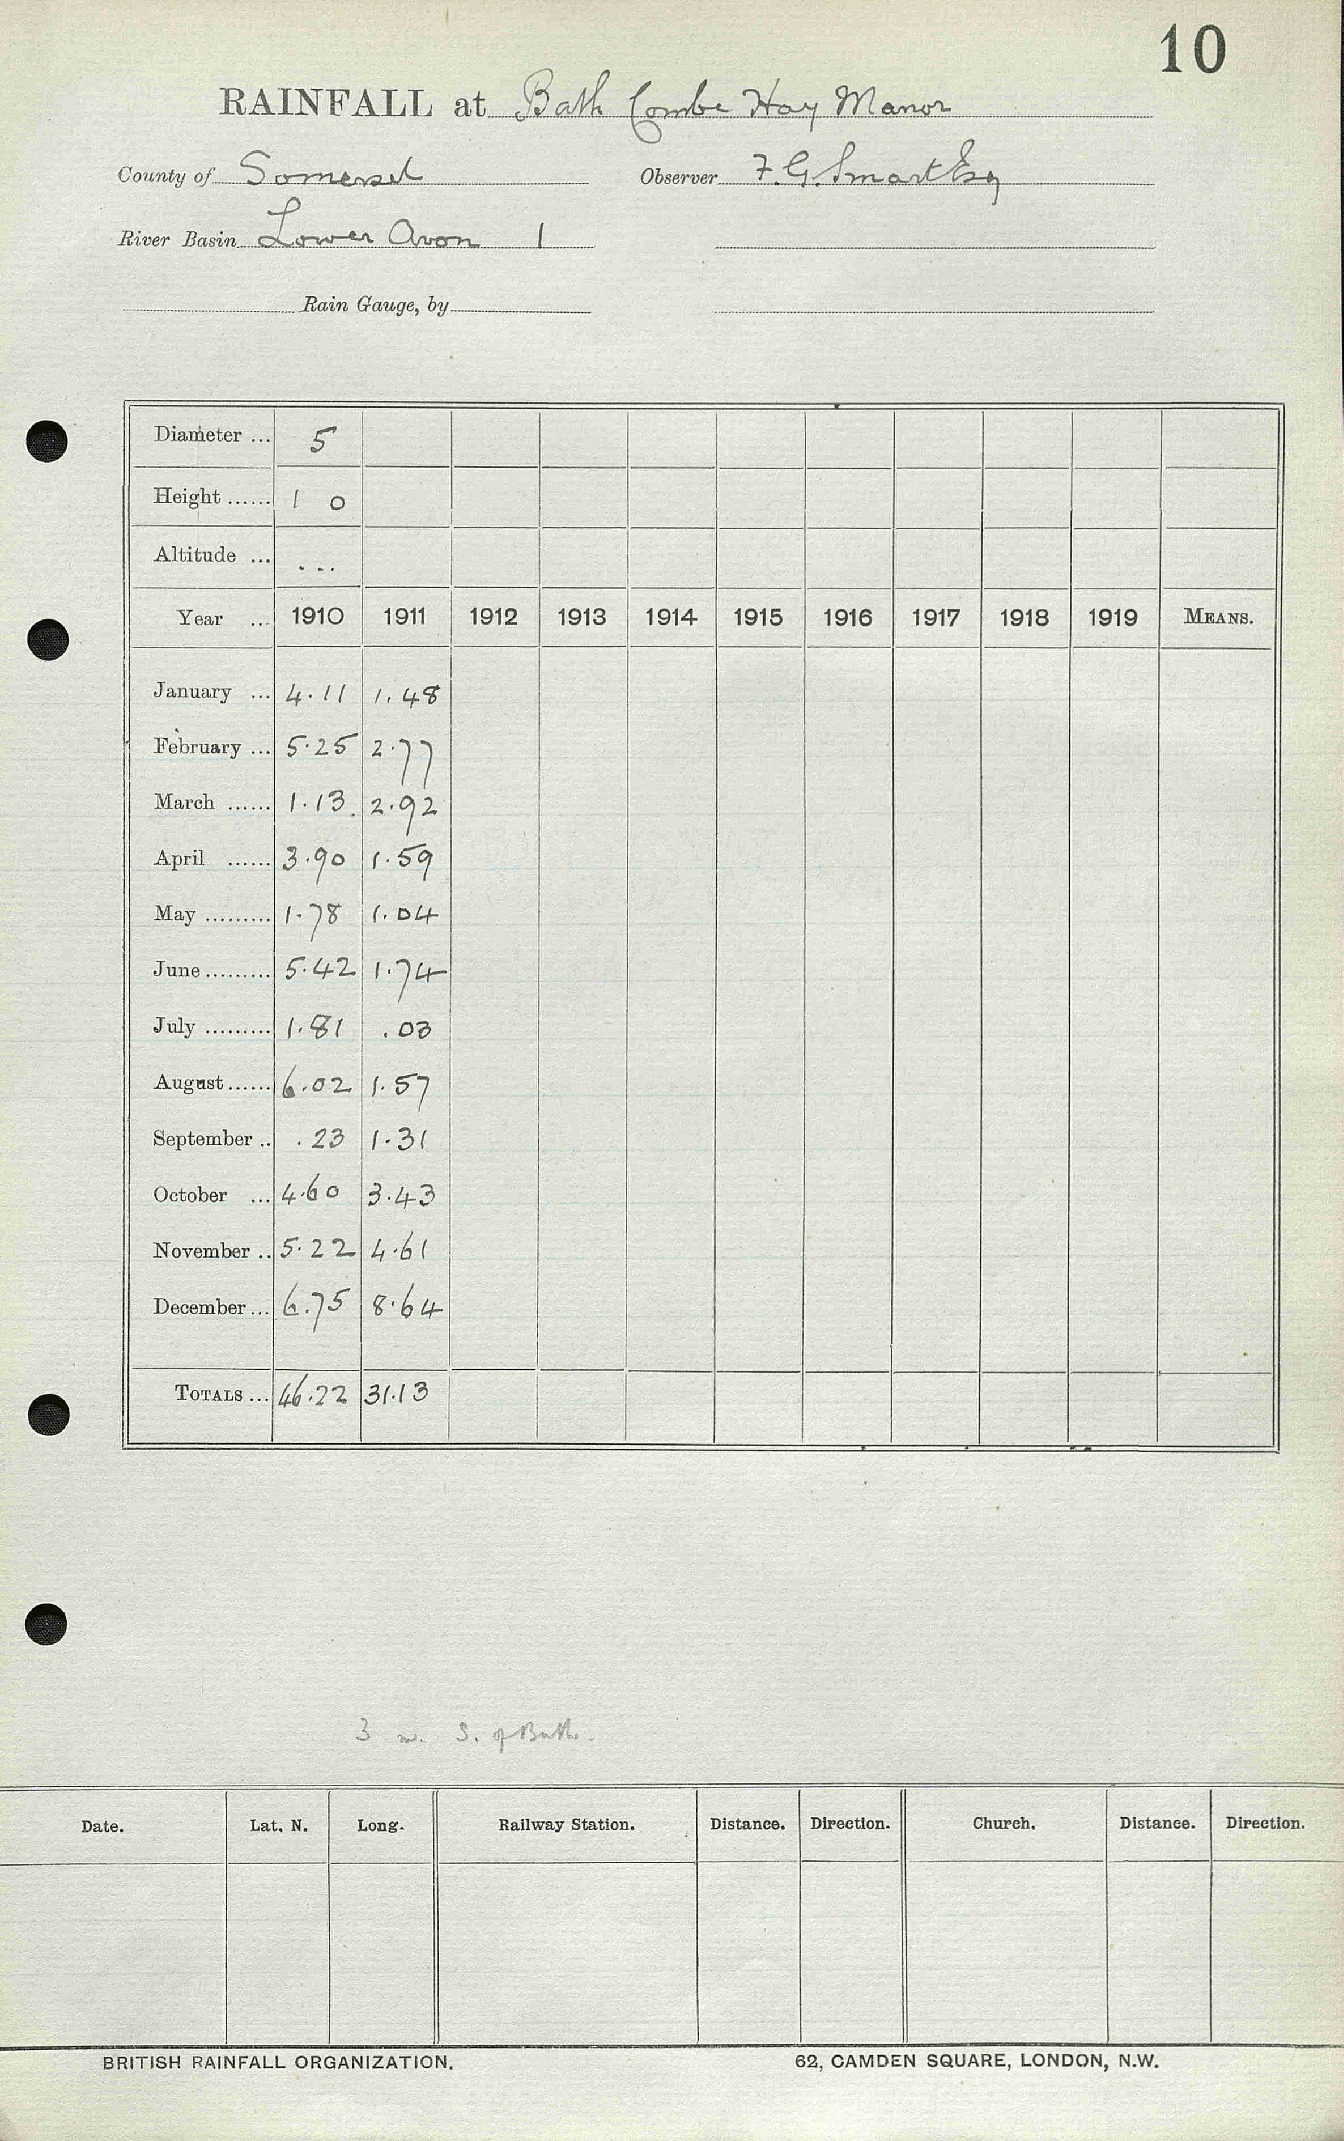 10
RAINFALL at Bath Combe Hay Manor
County of Somerset Observer F. G. Smart Esq
River Basin Lower Avon 1
Rain Gauge, by
Diameter ... 5
Height ...... 1 0
Altitude ... ...
Year ... 1910 1911 1912 1913 1914 1915 1916 1917 1918 1919 MEANS.
January ... 4.11 1.48
February ... 5.25 2.77
March ...... 1.13 2.92
April ...... 3.90 1.59
May ......... 1.78 1.04
June ......... 5.42 1.74
July ......... 1.81 .03
August ...... 6.02 1.57
September .. .23 1.31
October ... 4.60 3.43
November .. 5.22 4.61
December ... 6.75 8.64
TOTALS ... 46.22 31.13
3 m. S. of Bath.
Date. Lat. N. Long. Railway Station. Distance. Direction. Church. Distance. Direction.
BRITISH RAINFALL ORGANIZATION. 62, CAMDEN SQUARE, LONDON, N.W.